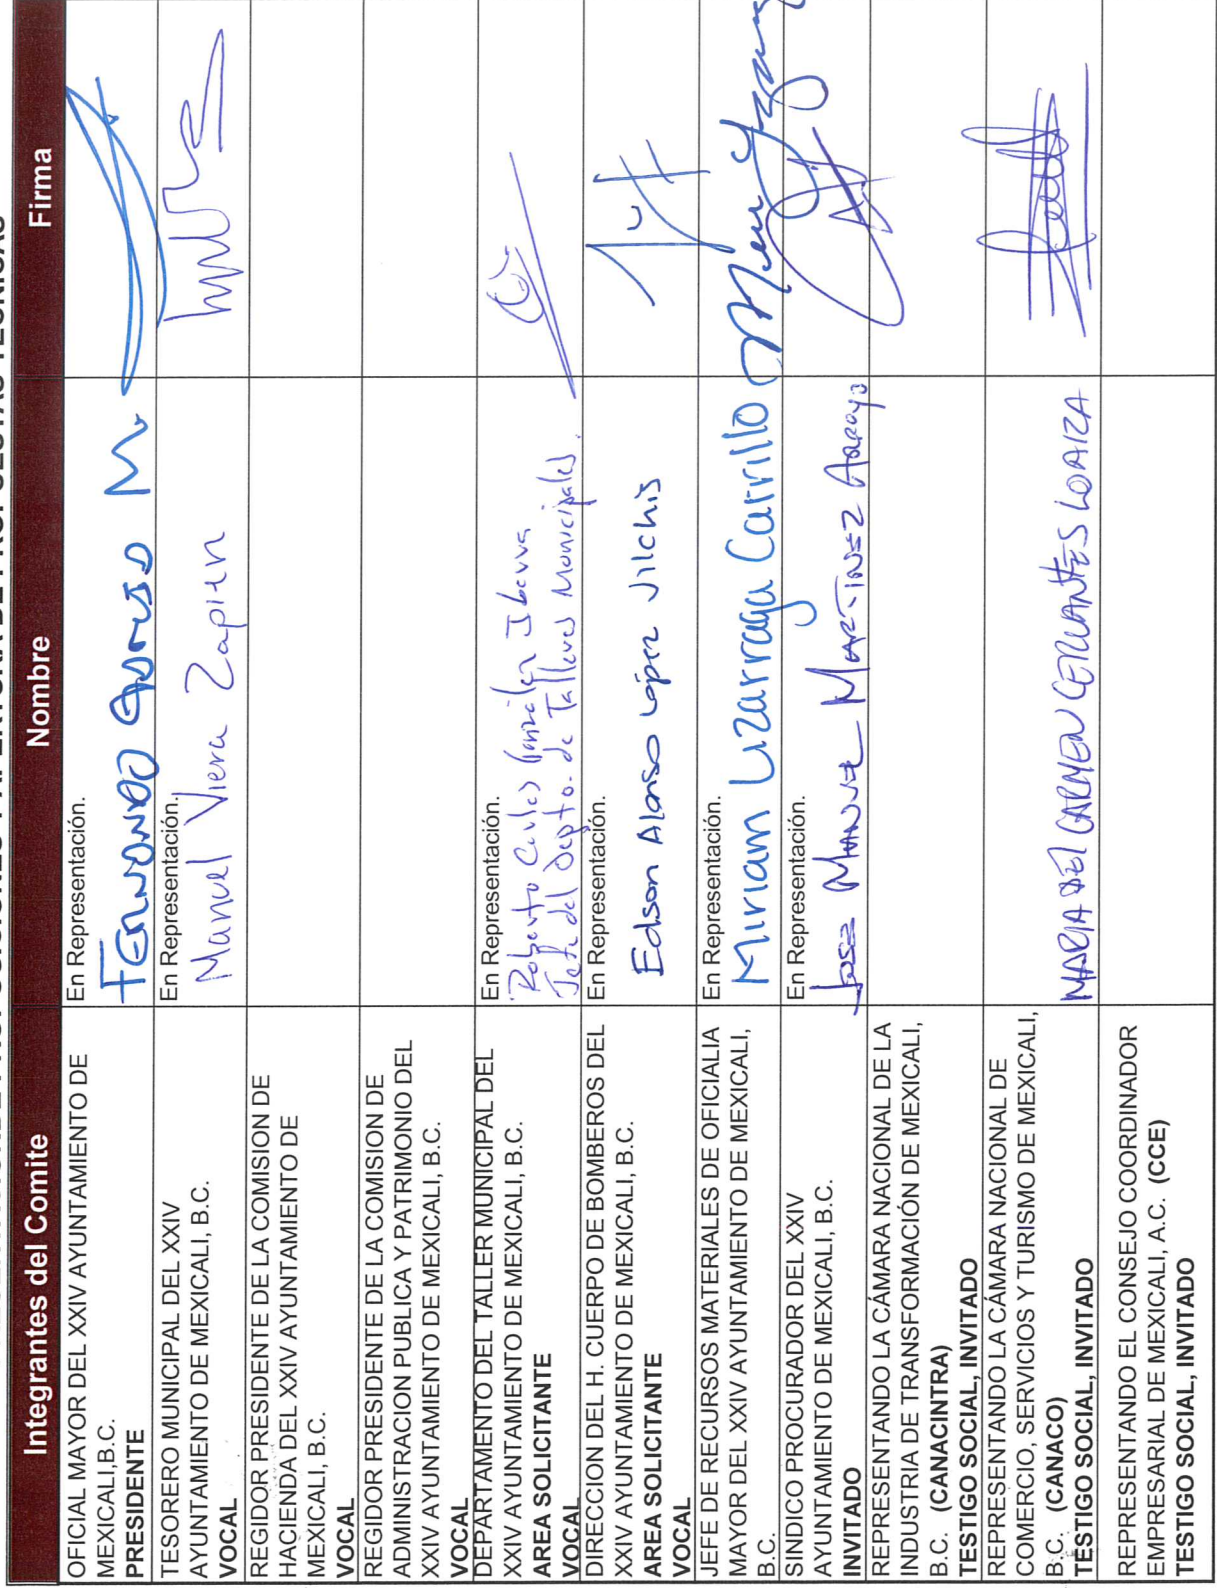 Integrantes del Comite
Nombre
Firma
OFICIAL MAYOR DEL XXIV AYUNTAMIENTO DE
MEXICALI,B.C.
PRESIDENTE
En Representación.
TESORERO MUNICIPAL DEL XXIV
AYUNTAMIENTO DE MEXICALI, B.C.
VOCAL
En Representación.
Manuel Viera Zapien
REGIDOR PRESIDENTE DE LA COMISION DE
HACIENDA DEL XXIV AYUNTAMIENTO DE
MEXICALI, B.C.
VOCAL
REGIDOR PRESIDENTE DE LA COMISION DE
ADMINISTRACION PUBLICA Y PATRIMONIO DEL
XXIV AYUNTAMIENTO DE MEXICALI, B.C.
VOCAL
DEPARTAMENTO DEL TALLER MUNICIPAL DEL
XXIV AYUNTAMIENTO DE MEXICALI, B.C.
AREA SOLICITANTE
VOCAL
En Representación.
Roberto Carlos González Ibarra
Jefe del Depto. de Talleres Municipales.
DIRECCION DEL H. CUERPO DE BOMBEROS DEL
XXIV AYUNTAMIENTO DE MEXICALI, B.C.
AREA SOLICITANTE
VOCAL
En Representación.
Edson Alonso López Vilchis
JEFE DE RECURSOS MATERIALES DE OFICIALIA
MAYOR DEL XXIV AYUNTAMIENTO DE MEXICALI,
B.C.
En Representación.
Miriam Lizarraga Carrillo
SINDICO PROCURADOR DEL XXIV
AYUNTAMIENTO DE MEXICALI, B.C.
INVITADO
En Representación.
Jose Manuel Martinez Arroyo
REPRESENTANDO LA CÁMARA NACIONAL DE LA
INDUSTRIA DE TRANSFORMACIÓN DE MEXICALI,
B.C. (CANACINTRA)
TESTIGO SOCIAL, INVITADO
REPRESENTANDO LA CÁMARA NACIONAL DE
COMERCIO, SERVICIOS Y TURISMO DE MEXICALI,
B.C. (CANACO)
TESTIGO SOCIAL, INVITADO
MARIA DEL CARMEN CERVANTES LOAIZA
REPRESENTANDO EL CONSEJO COORDINADOR
EMPRESARIAL DE MEXICALI, A.C. (CCE)
TESTIGO SOCIAL, INVITADO